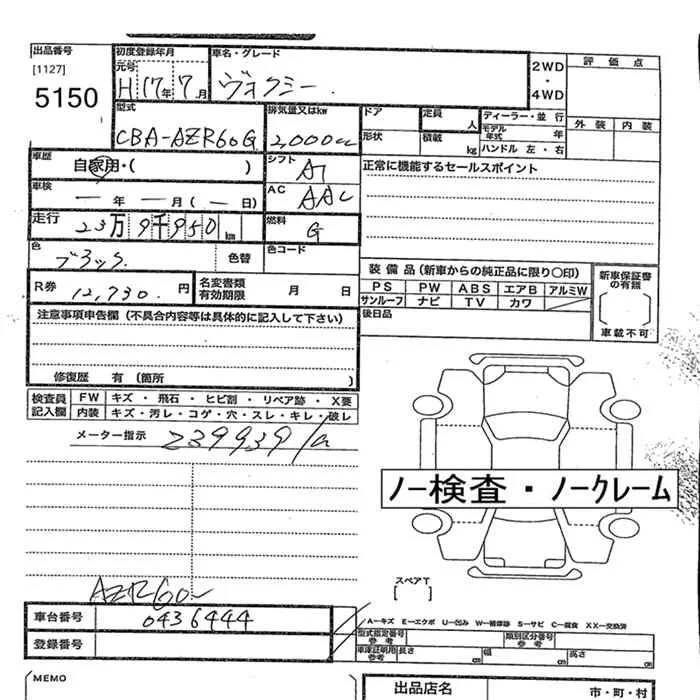 出品番号
[1127]
5150
初度登録年月
元号
H 17年 7月
車名・グレード
ヴォクシー
2WD
・
4WD
評価点
外装 内装
型式
CBA-AZR60G
排気量又はkw
2,000cc
ドア
形状
定員
人
積載
kg
ディーラー・並行
モデル年式 年
ハンドル 左・右
車歴
自家用・( )
シフト
AT
正常に機能するセールスポイント
車検
― 年 ― 月(― 日)
AC
AAC
走行
23万9千950km
燃料
G
色
ブラック
色替
色コード
R券
12,730.円
名変書類
有効期限
月 日
装備品(新車からの純正品に限り〇印)
PS PW ABS エアB アルミW
サンルーフ ナビ TV カワ
後日品
新車保証書
の有無
車載不可
注意事項申告欄(不具合内容等は具体的に記入して下さい)
修復歴 有(箇所 )
検査員
記入欄
FW キズ・飛石・ヒビ割・リペア跡・X要
内装 キズ・汚レ・コゲ・穴・スレ・キレ・破レ
メーター指示
239939
ノー検査・ノークレーム
スペアT
[ ]
AZR60-
車台番号
0436444
登録番号
A―キズ E―エクボ U―凹み W―補修跡 S―サビ C―腐食 XX―交換済
型式指定番号
参考
類別区分番号
参考
車庫証明用
参考
長さ cm 幅 cm 高さ cm
MEMO
出品店名
市・町・村